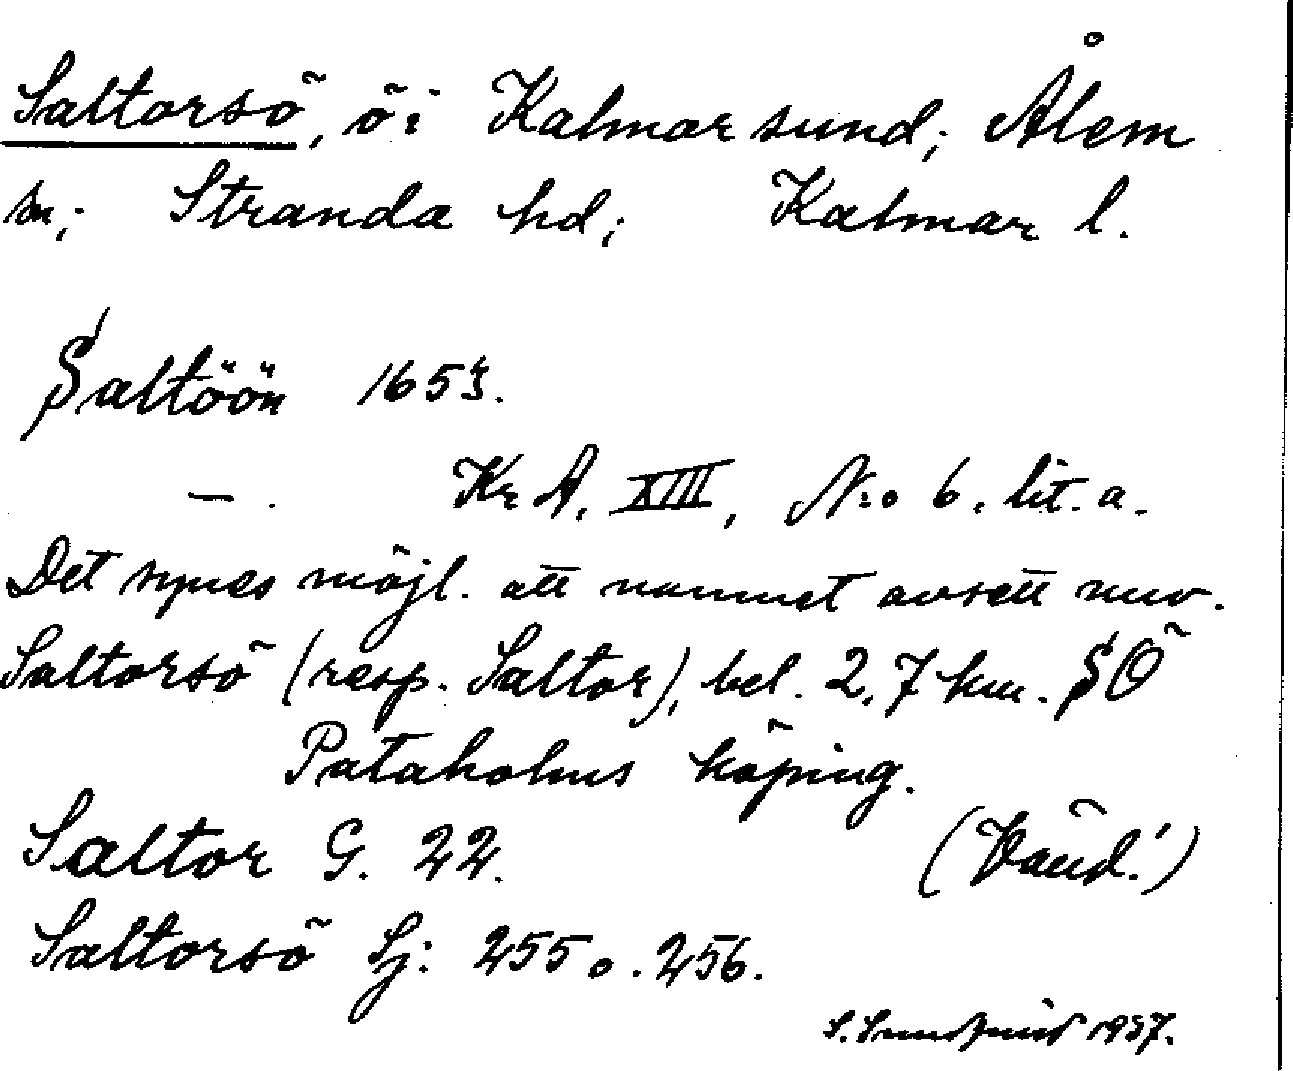 Saltorsö, ö i Kalmarsund; Ålem
sn; Stranda hd; Kalmar l.
Saltöön 1653.
—. Kr A, XIII, N:o 6. lit. a.
Det synes möjl. att namnet avsett nuv.
Saltorsö (resp. Saltor), bel. 2,7 km. SÖ
Pataholms köping.
Saltor G. 22. (Vänd!)
Saltorsö Sj: 255 o. 256.
S. Sundquist 1937.